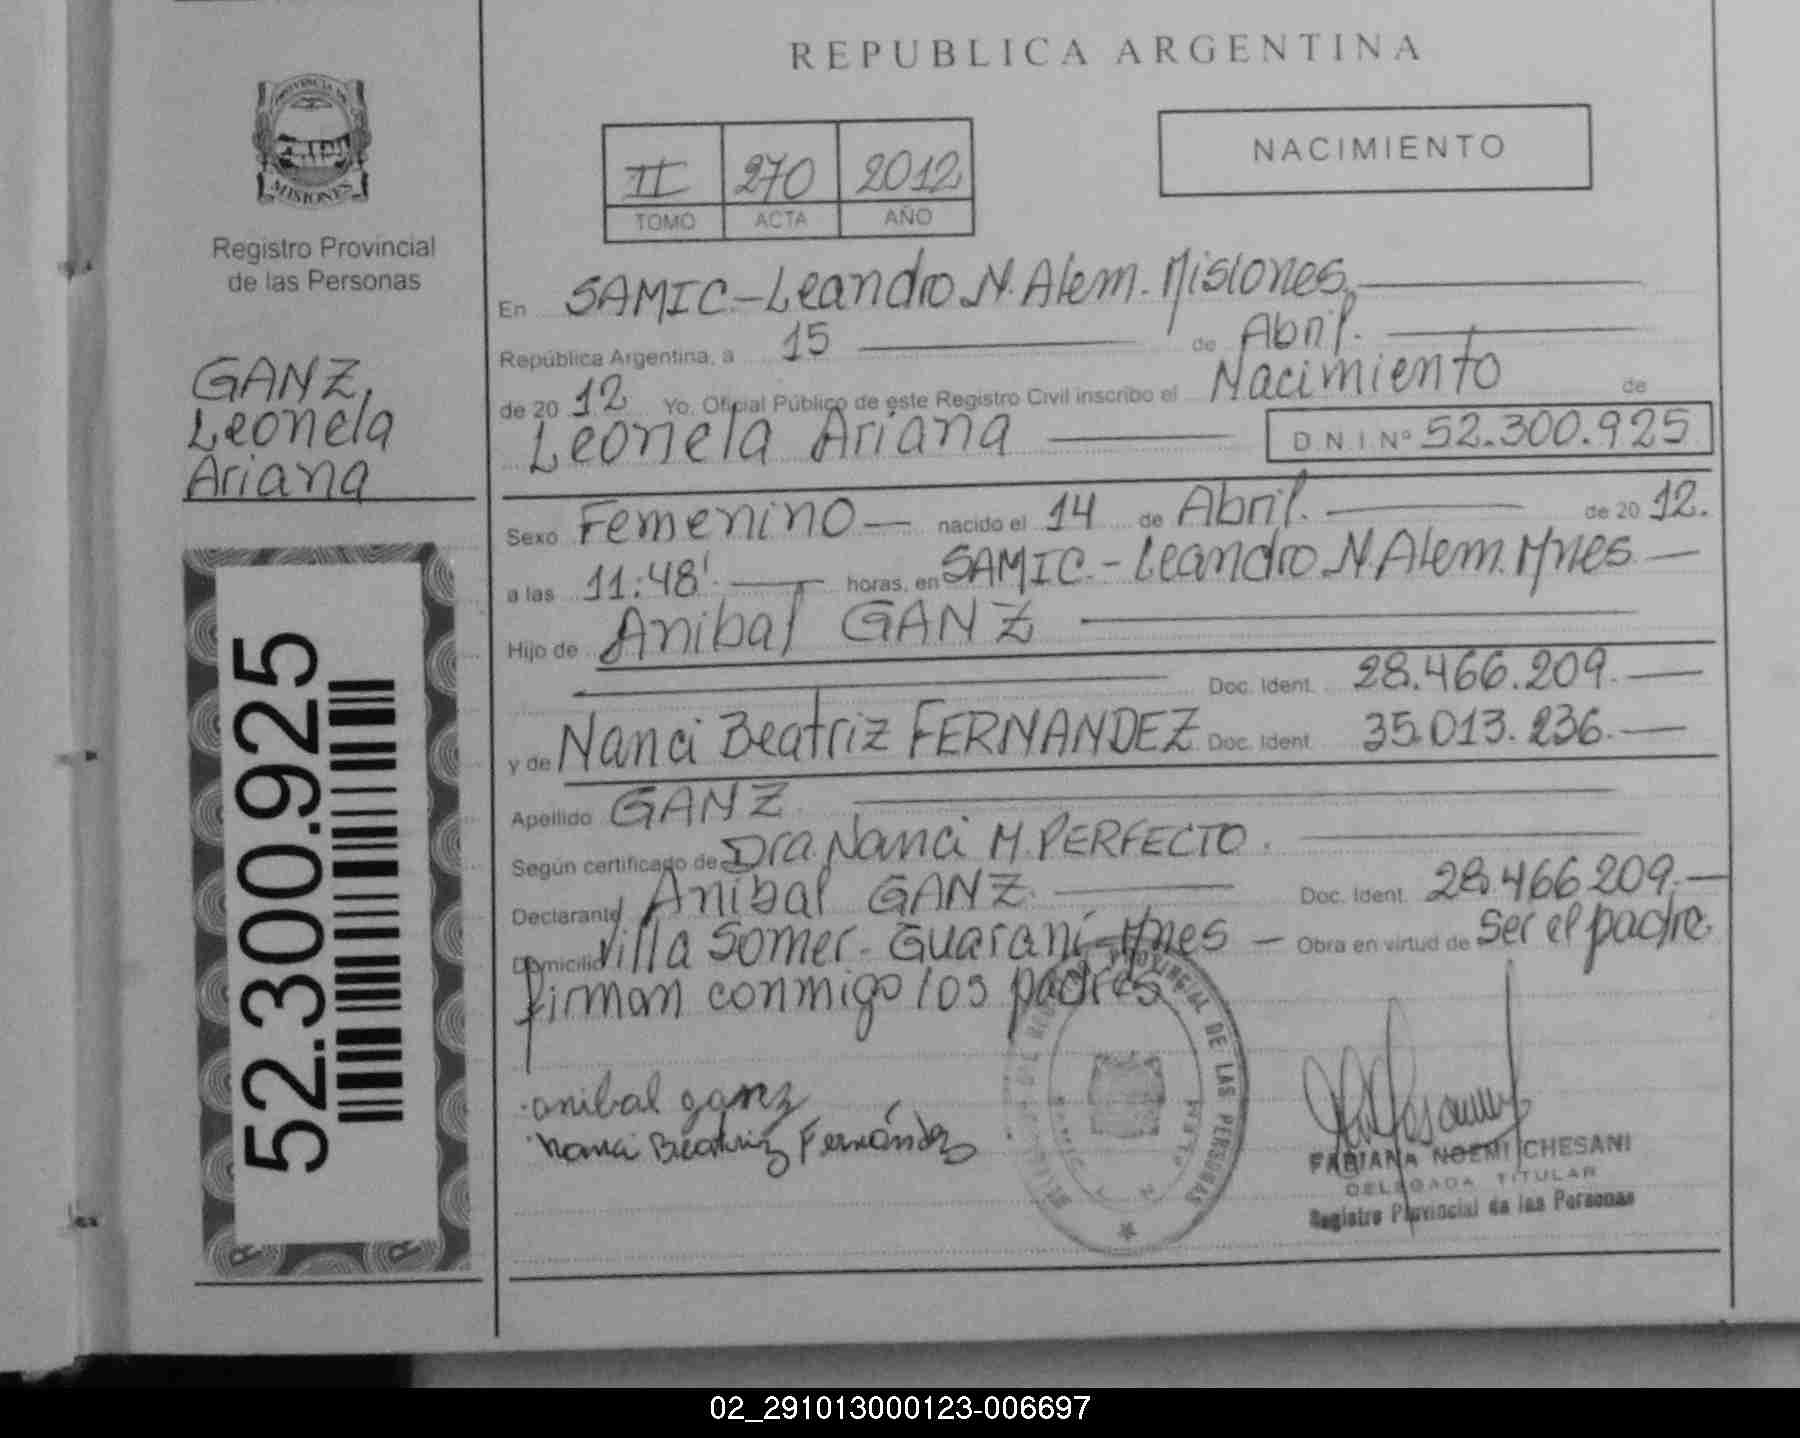 REPUBLICA ARGENTINA
PROVINCIA DE
MISIONES
Registro Provincial
de las Personas
II 270 2012
TOMO ACTA AÑO
NACIMIENTO
GANZ,
Leonela
Ariana
52.300.925
En SAMIC-Leandro N. Alem. Misiones,
República Argentina, a 15 de Abril.
de 20 12 Yo, Oficial Público de este Registro Civil inscribo el Nacimiento de
Leonela Ariana D.N.I Nº 52.300.925
Sexo Femenino nacido el 14 de Abril. de 20 12.
a las 11:48' horas, en SAMIC.- Leandro N. Alem. Mnes
Hijo de Anibal GANZ
Doc. Ident. 28.466.209.
y de Nanci Beatriz FERNANDEZ Doc. Ident. 35.013.236.
Apellido GANZ
Según certificado de Dra. Nanci M. PERFECTO.
Declarante Anibal GANZ. Doc. Ident. 28.466.209.
Domicilio Villa Somer- Guaraní-Mnes Obra en virtud de ser el padre
firman conmigo los padres
anibal ganz
Nanci Beatriz Fernández
PROVINCIAL DE LAS PERSONAS
FABIANA NOEMI CHESANI
DELEGADA TITULAR
Registro Provincial de las Personas
02_291013000123-006697